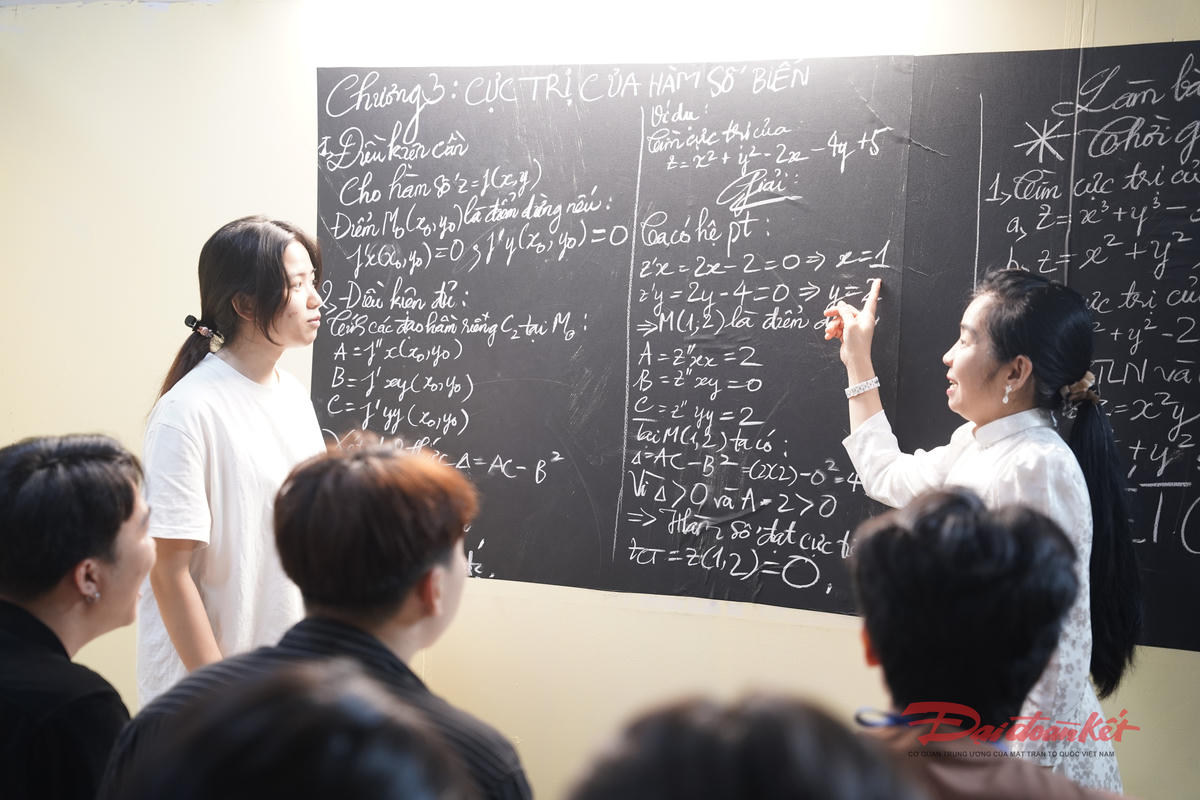 Chương 3: CỰC TRỊ CỦA HÀM SỐ BIẾN
1, Điều kiện cần
Cho hàm số z = f(x,y)
Điểm M₀(x₀,y₀) là điểm dừng nếu:
f'x(x₀,y₀) = 0 ; f'y(x₀,y₀) = 0
2, Điều kiện đủ:
các đạo hàm riêng C₂ tại M₀:
A = f''x(x₀,y₀)
B = f'xy(x₀,y₀)
C = f'yy(x₀,y₀)
Δ = AC - B²
Ví dụ:
Tìm cực trị của
z = x² + y² - 2x - 4y + 5
Giải:
Ta có hệ pt:
z'x = 2x - 2 = 0 ⇒ x = 1
z'y = 2y - 4 = 0 ⇒ y = 2
⇒ M(1,2) là điểm
A = z''xx = 2
B = z''xy = 0
C = z''yy = 2
Tại M(1,2) ta có:
Δ = AC - B² = (2x2) - 0² = 4
Vì Δ > 0 và A = 2 > 0
⇒ Hàm số đạt cực
zCT = z(1,2) = 0.
Làm
* Thời
1, Tìm cực trị
a, z = x³ + y³ -
b, z = x² + y²
cực trị
² + y² - 2
TLN và
z = x²y
+ y²
Đại đoàn kết
CƠ QUAN TRUNG ƯƠNG CỦA MẶT TRẬN TỔ QUỐC VIỆT NAM